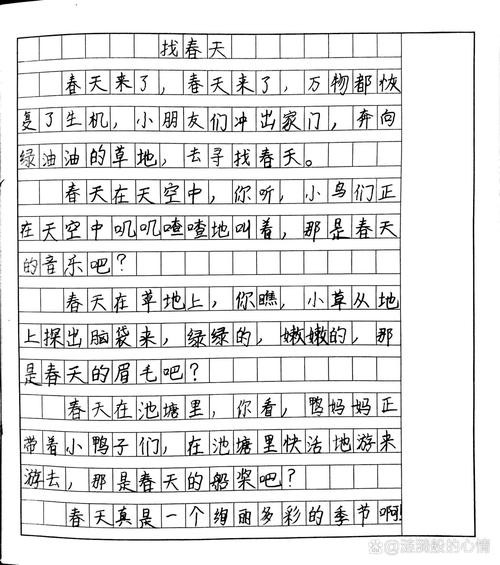 找春天
春天来了，春天来了，万物都恢
复了生机，小朋友们冲出家门，奔向
绿油油的草地，去寻找春天。
春天在天空中，你听，小鸟们正
在天空中叽叽喳喳地叫着，那是春天
的音乐吧？
春天在草地上，你瞧，小草从地
上探出脑袋来，绿绿的，嫩嫩的，那
是春天的眉毛吧？
春天在池塘里，你看，鸭妈妈正
带着小鸭子们，在池塘里快活地游来
游去，那是春天的船桨吧？
春天真是一个绚丽多彩的季节啊！